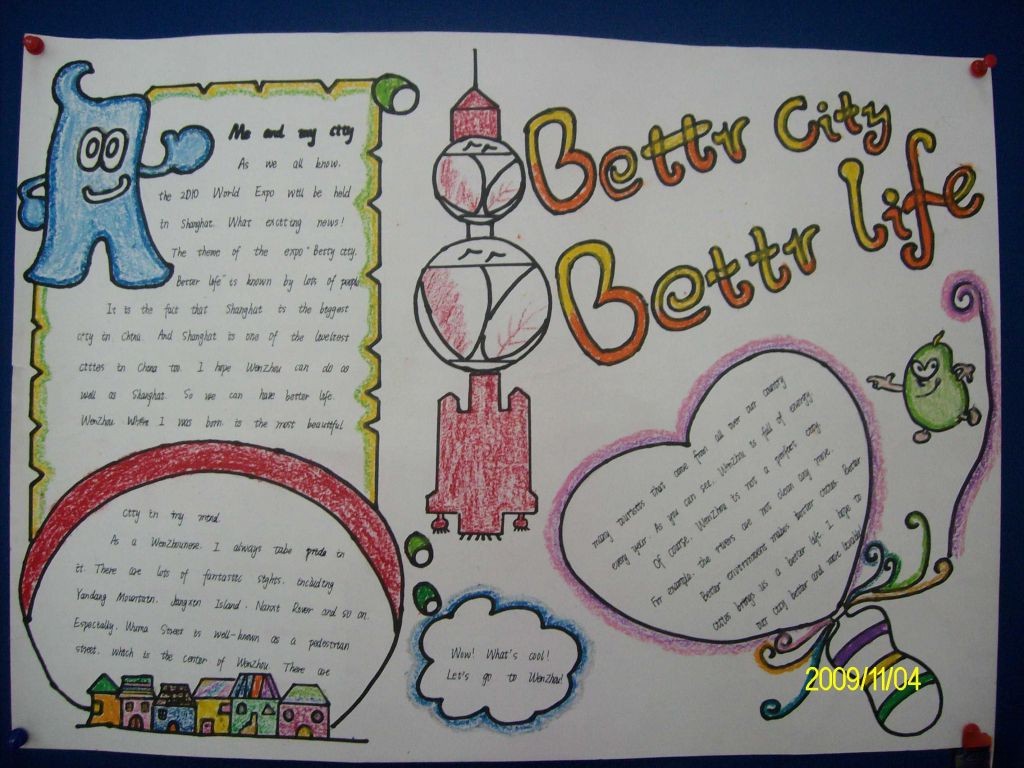 Bettr City
Bettr life
Me and my city
As we all know,
the 2010 World Expo will be held
in Shanghai. What exciting news!
The theme of the expo "Betty city,
Better life" is known by lots of people
It is the fact that Shanghai is the biggest
city in China. And Shanghai is one of the loveliest
cities in China too. I hope WenZhou can do as
well as Shanghai. So we can have better life.
WenZhou Where I was born is the most beautiful
city in my mind.
As a WenZhounese, I always take pride in
it. There are lots of fantastic sights, including
Yandang Mountain, Jangxin Island, Nanxi River and so on.
Especially, Wuma Street is well-known as a pedestrian
street, which is the center of WenZhou. There are
many tourists that come from all over our country
every year. As you can see, WenZhou is full of energy.
Of course, WenZhou is not a perfect city.
For example, the rivers are not clean any more.
Better environment makes better cities. Better
cities brings us a better life. I hope to
our city better and more lovely!
Wow! What's cool!
Let's go to WenZhou!
2009/11/04